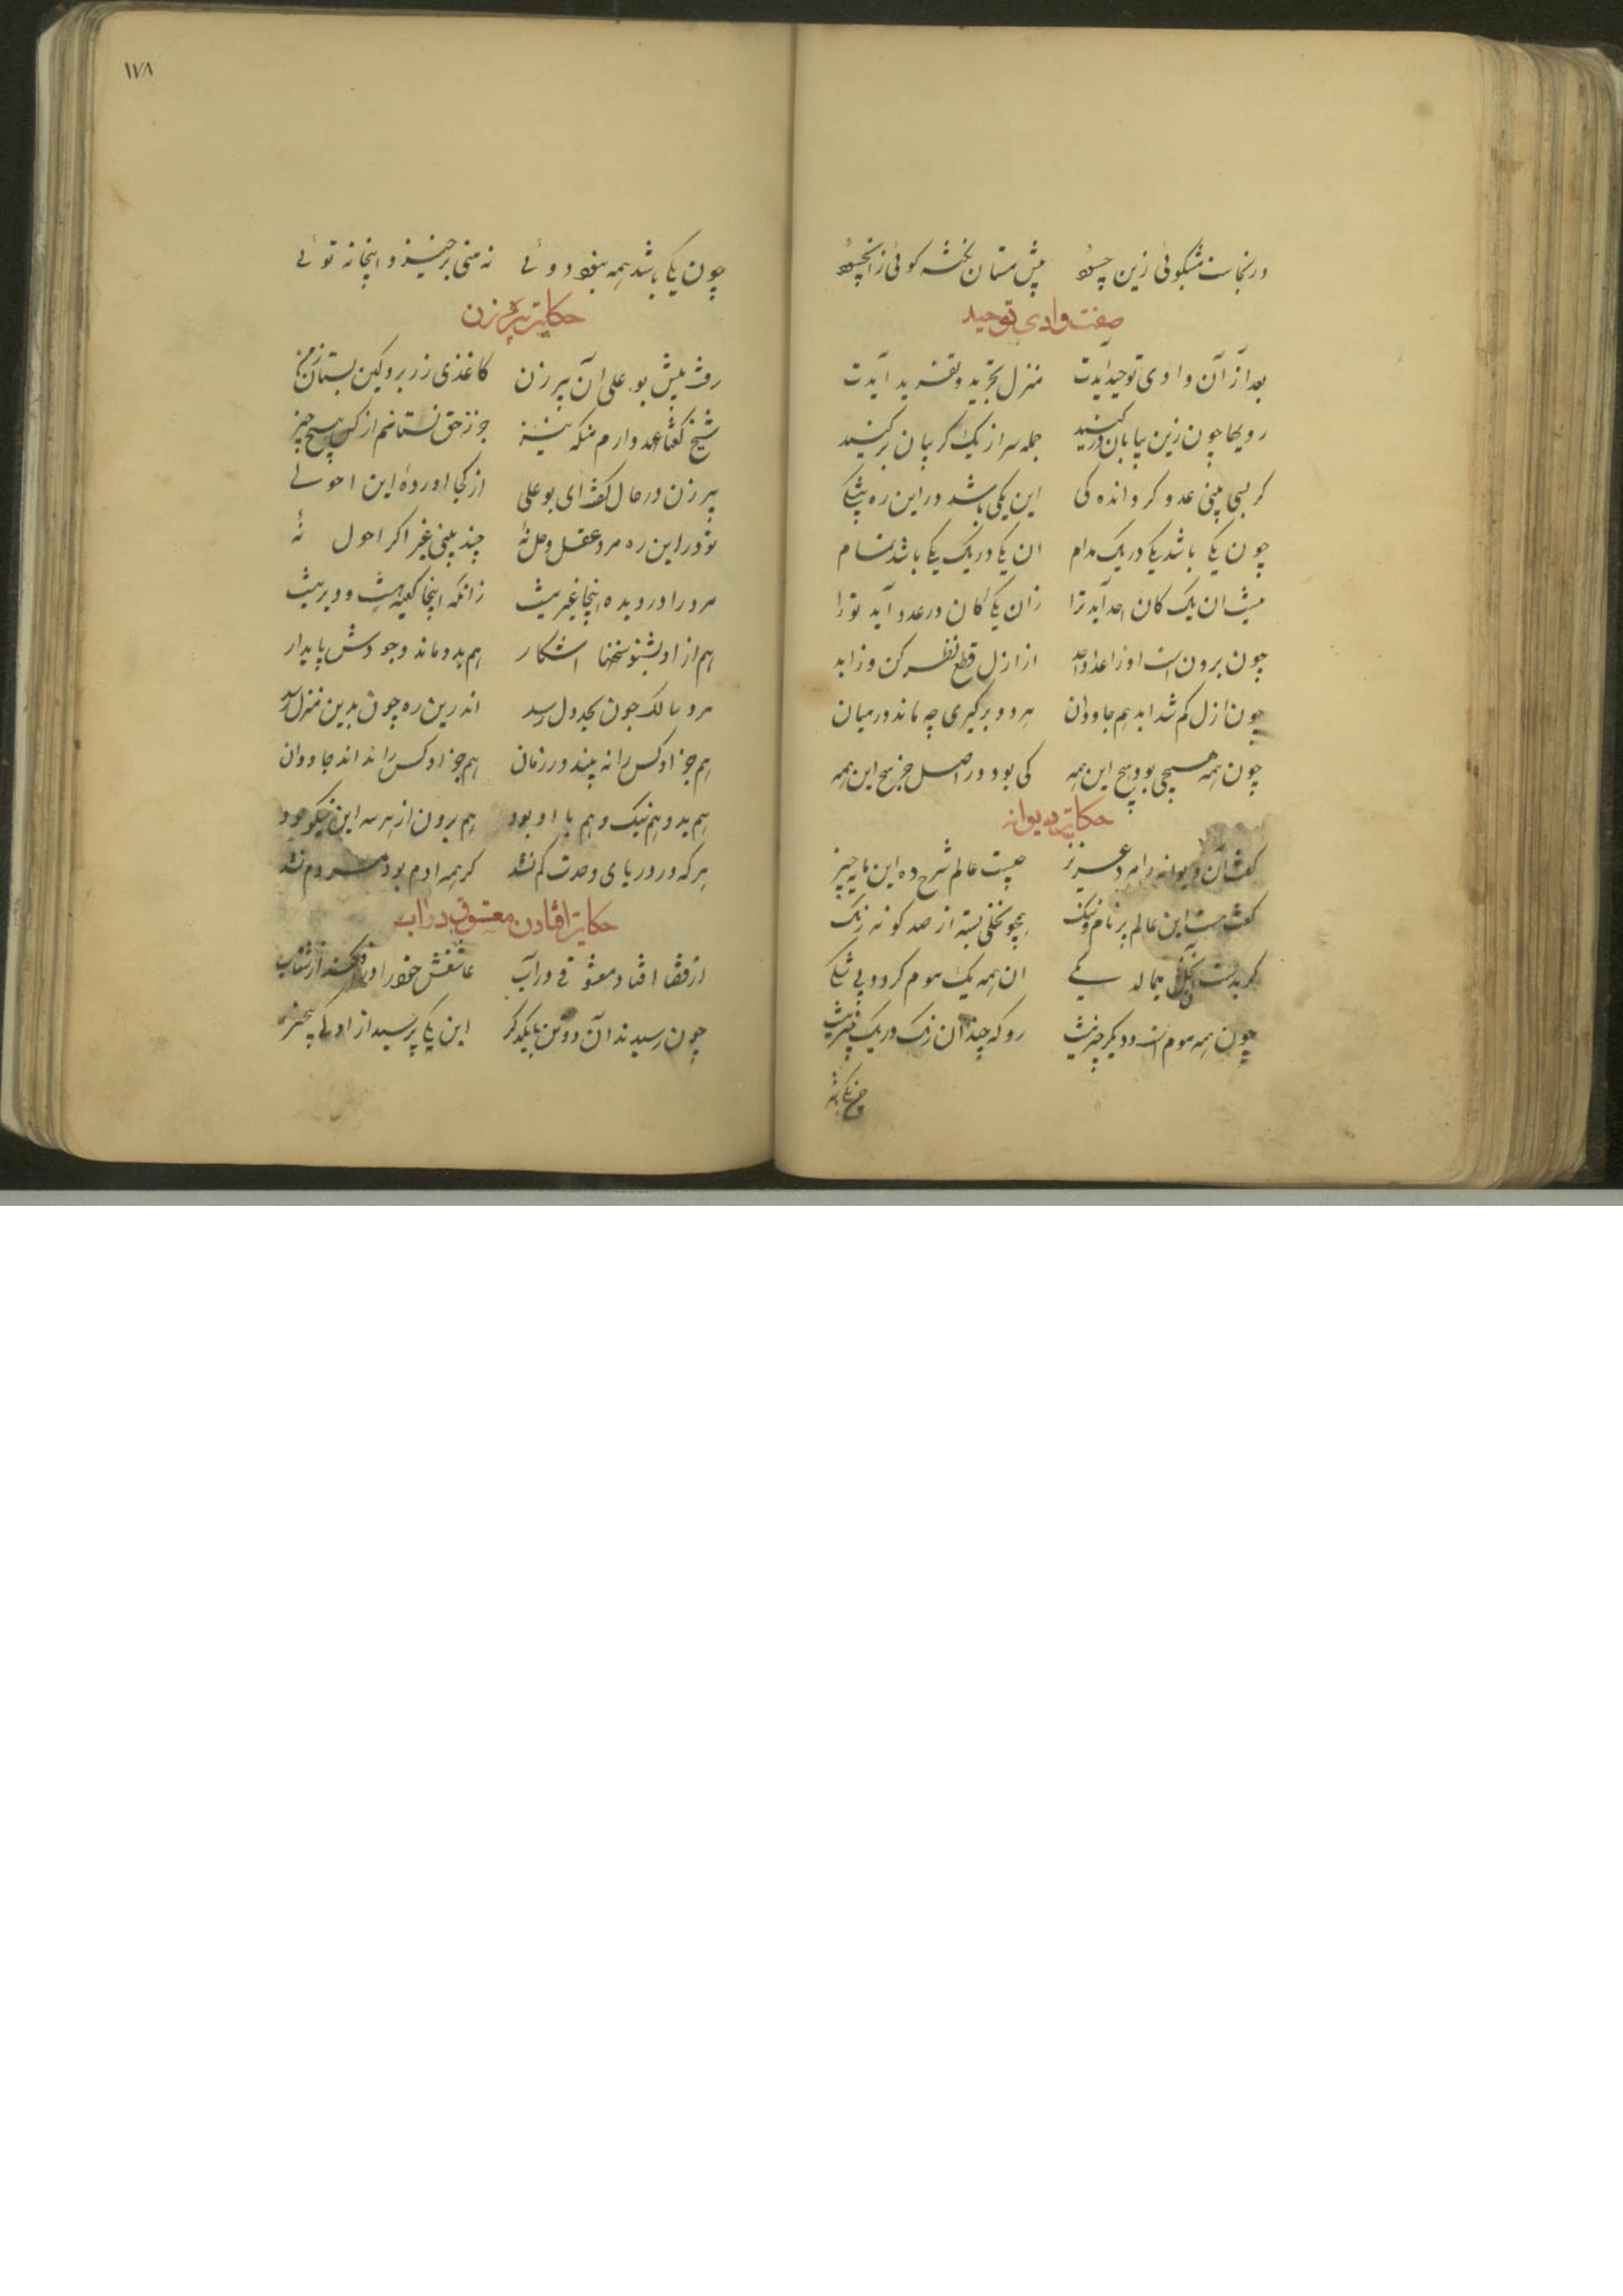 در نجاست مشکوئی زین چسود پیش مستان نخشه کوئی زانچسود
صفت وادی توحید
بعد از آن وادی توحید آیدت منزل تجرید و تفرید آیدت
رویها چون زین بیابان درکنید جمله سر از یک کریبان برکنید
کر بسی بینی عدد کر اندکی این یکی باشد در این ره بیشکی
چون یکی باشد یک در یک مدام ان یک در یک یکی باشد تمام
نیست ان یک کان احد آید ترا زان یکی کان در عدد آید ترا
چون برون است او ز اعداد احد از ازل قطع نظر کن وز ابد
چون ازل کم شد ابد هم جاودان هر دو برکیری چه ماند در میان
چون همه هیچی بود هیچ این همه کی بود در اصل جز هیچ این همه
حکایت دیوانه
کفت آن دیوانه را مرد عزیز چیست عالم شرح ده این مایه چیز
کفت هست این عالم پر نام و ننک همچو نخلی بسته از صد کونه رنک
کر بدست این نخل بیمالد یکی ان همه یک موم کردد بی شکی
چون همه موم است و دیکر چیز نیست رو که چندان رنک در یک چیز نیست
١٧٨
چون یکی باشد همه نبود دوئی نه منی برخیزد و اینجا نه توئی
حکایت پیره زن
رفت پیش بو علی ان پیر زن کاغذی زر برد و کین بستان ز من
شیخ کفتا عهد دارم منکه نیز جز ز حق نستانم از کس هیچ چیز
پیر زن در حال کفت ای بو علی از کجا اوردهٔ این احولی
تو در این ره مرد عقل و حل نهٔ چند بینی غیر اکر احول نهٔ
مرد را در دیده اینجا غیر نیست زانکه اینجا کعبه نیست و دیر نیست
هم از او بشنو سخنها اشکار هم بدو ماند وجودش پایدار
اندرین ره چون بدین منزل رسد
هم جز او کس را نه بیند در زمان هم جز او کس را نداند جاودان
هم بدو هم نیک و هم با او بود هم برون از هر سه این نیکو بود
هر که در دریای وحدت کم نشد کر همه ادم بود مردم نشد
حکایت افتادن معشوق در اب
از قضا افتاد معشوقی در آب عاشقش خود را درافکند از شتاب
چون رسیدند آن دو تن با یکدکر این یکی پرسید از او کی بیخبر